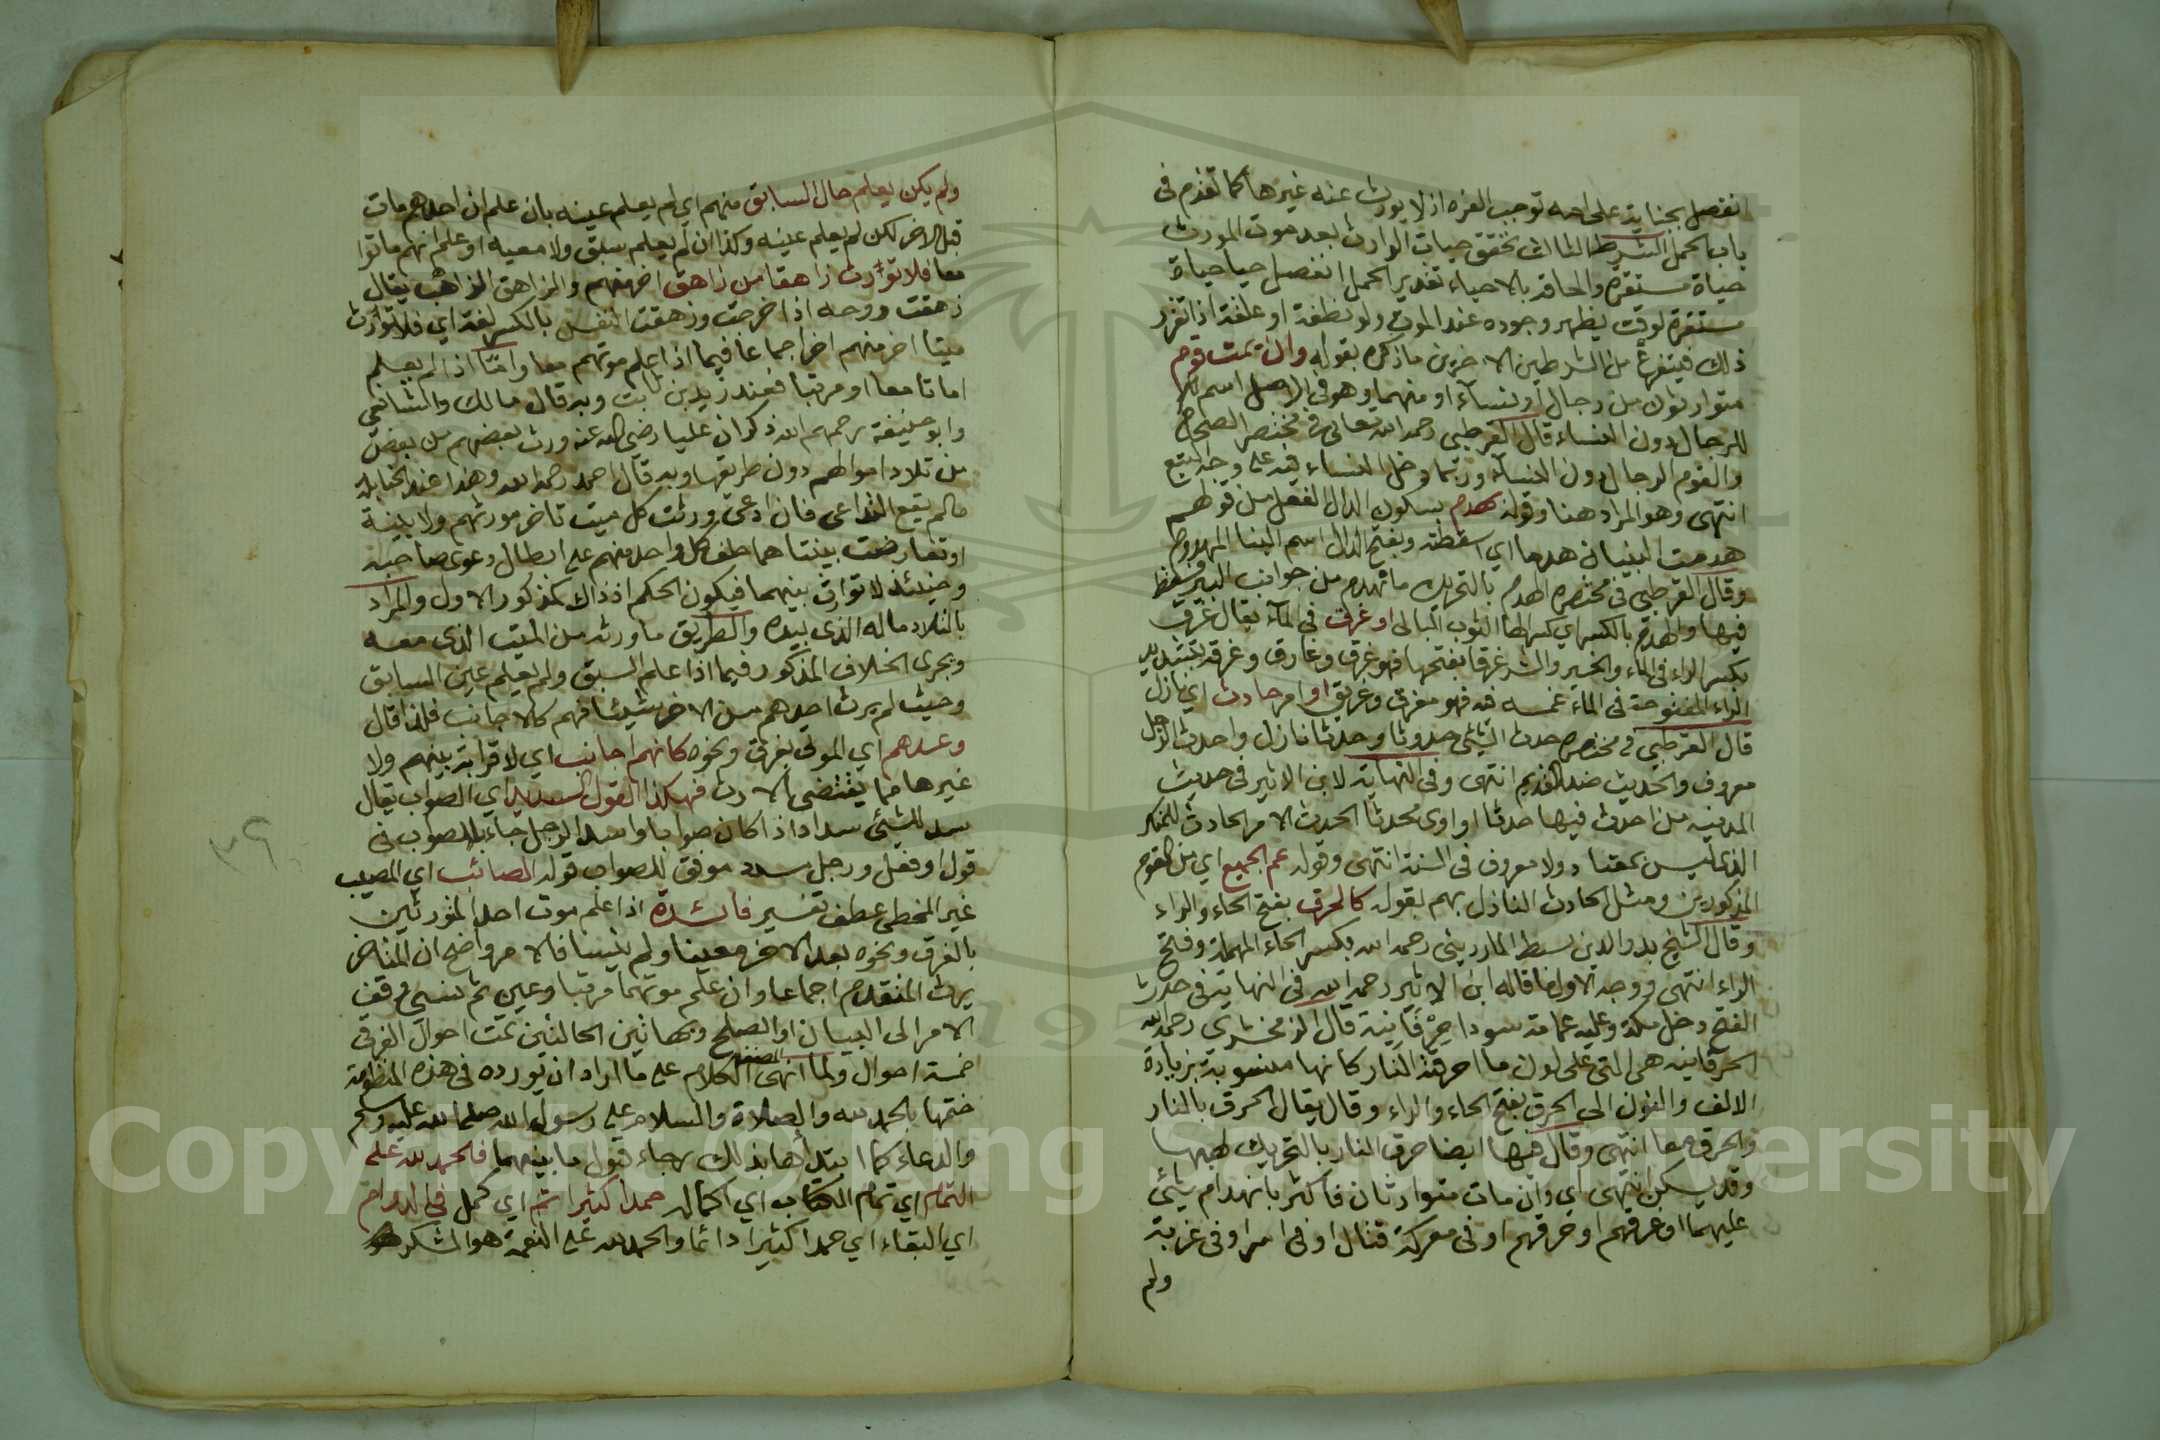 انفصل بجناية على امه توجب الغره اذ لا يورث عنه غيرها كما تقدم في
باب الحمل الشرط الثالث تحقق حياة الوارث بعد موت المورث
حياة مستقرة والحاقه بالاحياء تقدير الحمل انفصل حيا حياة
مستقرة لوقت يظهر وجوده عند الموت ولو نطفة او علقة اذا تقرر
ذلك فيتفرع من الشرطين الاخرين ما ذكره بقوله وان يمت قوم
متوارثون من رجال او نساء او منهما وهو في الاصل اسم
للرجال دون النساء قال القرطبي رحمه الله تعالى في مختصر الصحاح
والقوم الرجال دون النساء وربما دخل النساء فيه على وجه التبع
انتهى وهو المراد هنا وقوله بهدم بسكون الدال الفعل من قولهم
هدمت البنيان هدما اي اسقطته وبفتح الدال اسم البنا المهدوم
وقال القرطبي في مختصره الهدم بالتحريك ما تهدم من جوانب البير فسقط
فيها والهدم بالكسر اي كسر الهاء الثوب البالي او غرق في الماء يقال غرق
بكسر الراء في الماء والخير والشر غرقا بفتحها فهو غرق وغارق وغرقه بتشديد
الراء المفتوحة في الماء غمسه فيه فهو مغرق وغريق او امر حادث اي نازل
قال القرطبي في مختصره حدث الشئ حدوثا وحدثا نازل واحدث الرجل
معروف والحديث ضد القديم انتهى وفي النهاية لابن الاثير في حديث
المدينه من احدث فيها حدثا او اوى محدثا الحدث الامر الحادث المنكر
الذي ليس بمعتاد ولا معروف في السنة انتهى وقوله عم الجميع اي من القوم
المذكورين ومثل الحادث النازل بهم بقوله كالحرق بفتح الحاء والراء
وقال الشيخ بدر الدين سبط المارديني رحمه الله بكسر الحاء المهملة وفتح
الراء انتهى ووجه الاول ما قاله ابن الاثير رحمه الله في النهاية في حديث
الفتح دخل مكة وعليه عمامة سودا حرقانية قال الزمخشري رحمه الله
الحرقانيه هي التي على لون ما احرقته النار كانها منسوبة بزيادة
الالف والنون الى الحرق بفتح الحاء والراء وقال يقال الحرق بالنار
والحرق معا انتهى وقال فيها ايضا حرق النار بالتحريك لهبها
وقد يسكن انتهى اي وان مات متوارثان فاكثر بانهدام شئ
عليهما او غرقهم او حرقهم او في معركة قتال او في اسر او في غربة
ولم
ولم يكن يعلم حال السابق منهم اي لم يعلم عينه بان علم ان احدهم مات
قبل الاخر لكن لم يعلم عينه وكذا ان لم يعلم سبق ولا معيه او علم انهم ماتوا
معا فلا تورث زاهقا من زاهق اخر منهم والزاهق الذاهب يقال
زهقت روحه اذا خرجت وزهقت النفس بالكسر لغة اي فلا تورث
ميتا اخر منهم اخر اجماعا فيما اذا علم موتهم معا واما اذا لم يعلم
اماتا معا او مرتبا فعند زيد بن ثابت وبه قال مالك والشافعي
وابو حنيفة رحمهم الله ذكر ان عليا رضي الله عنه ورث بعضهم من بعض
من تلاد اموالهم دون طريقها وبه قال احمد رحمه الله وهذا عند الحنابلة
ما لم يقع التداعي فان ادعى ورثت كل ميت تاخر مورثهم ولا بينة
او تعارضت بينتاهما حلف كل واحد منهم على ابطال دعوى صاحبه
وحينئذ لا توارث بينهما فيكون الحكم اذ ذاك كمذكور الاول والمراد
بالتلاد ماله الذي بيده والطريق ما ورثه من الميت الذي معه
ويجري الخلاف المذكور فيما اذا علم السبق ولم يعلم عين السابق
وحيث لم يرث احدهم من الاخر شيئا فهم كالاجانب فلذا قال
وعدهم اي الموتى بغرق ونحوه كانهم اجانب اي لا قرابة بينهم ولا
غيرها مما يقتضي الارث فهكذا القول السديد اي الصواب يقال
سد الشئ سدادا اذا كان صوابا واسد الرجل جاء بالصواب في
قول او فعل ورجل مسدد موفق للصواب قوله الصائب اي المصيب
غير المخطي عطف تفسير فائدة اذا علم موت احد المتورثين
بالغرق ونحوه بعد الاخر معينا ولم ينسا فالامر واضح ان المتاخر
يرث المتقدم اجماعا وان علم موتهما مرتبا وعين ثم نسي وقف
الامر الى البيان او الصلح وبهاتين الحالتين تمت احوال الغرقى
خمسة احوال ولما انهى المصنف الكلام على ما اراد ان يورده في هذه المنظومة
ختمها بالحمد لله والصلاة والسلام على رسول الله صلى الله عليه وسلم
والدعاء كما ابتداها بذلك رجاء قبول ما بينهما فالحمد لله على
التمام اي تمام الكتاب اي اكماله حمدا كثيرا تم اي كمل في الدوام
اي البقاء اي حمدا كثيرا دائما والحمد لله على النعمة هو الشكر
٣٩
Copyright © King Saud University
195